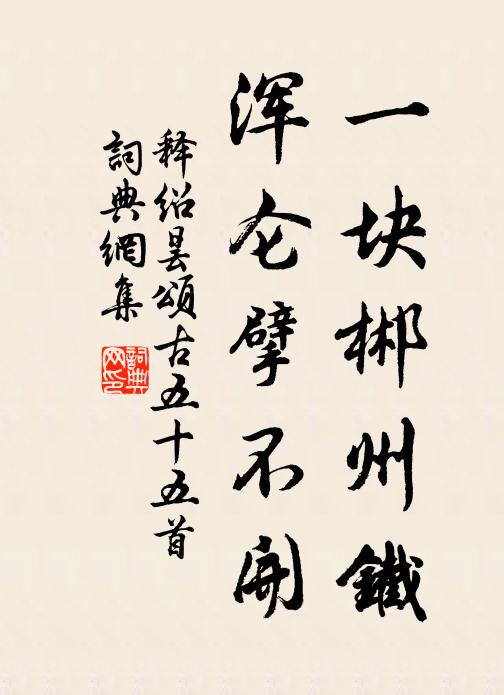 一块郴州鐵
浑仑擘不開
释绍昙頌古五十五首
詞典網集
詞典网印